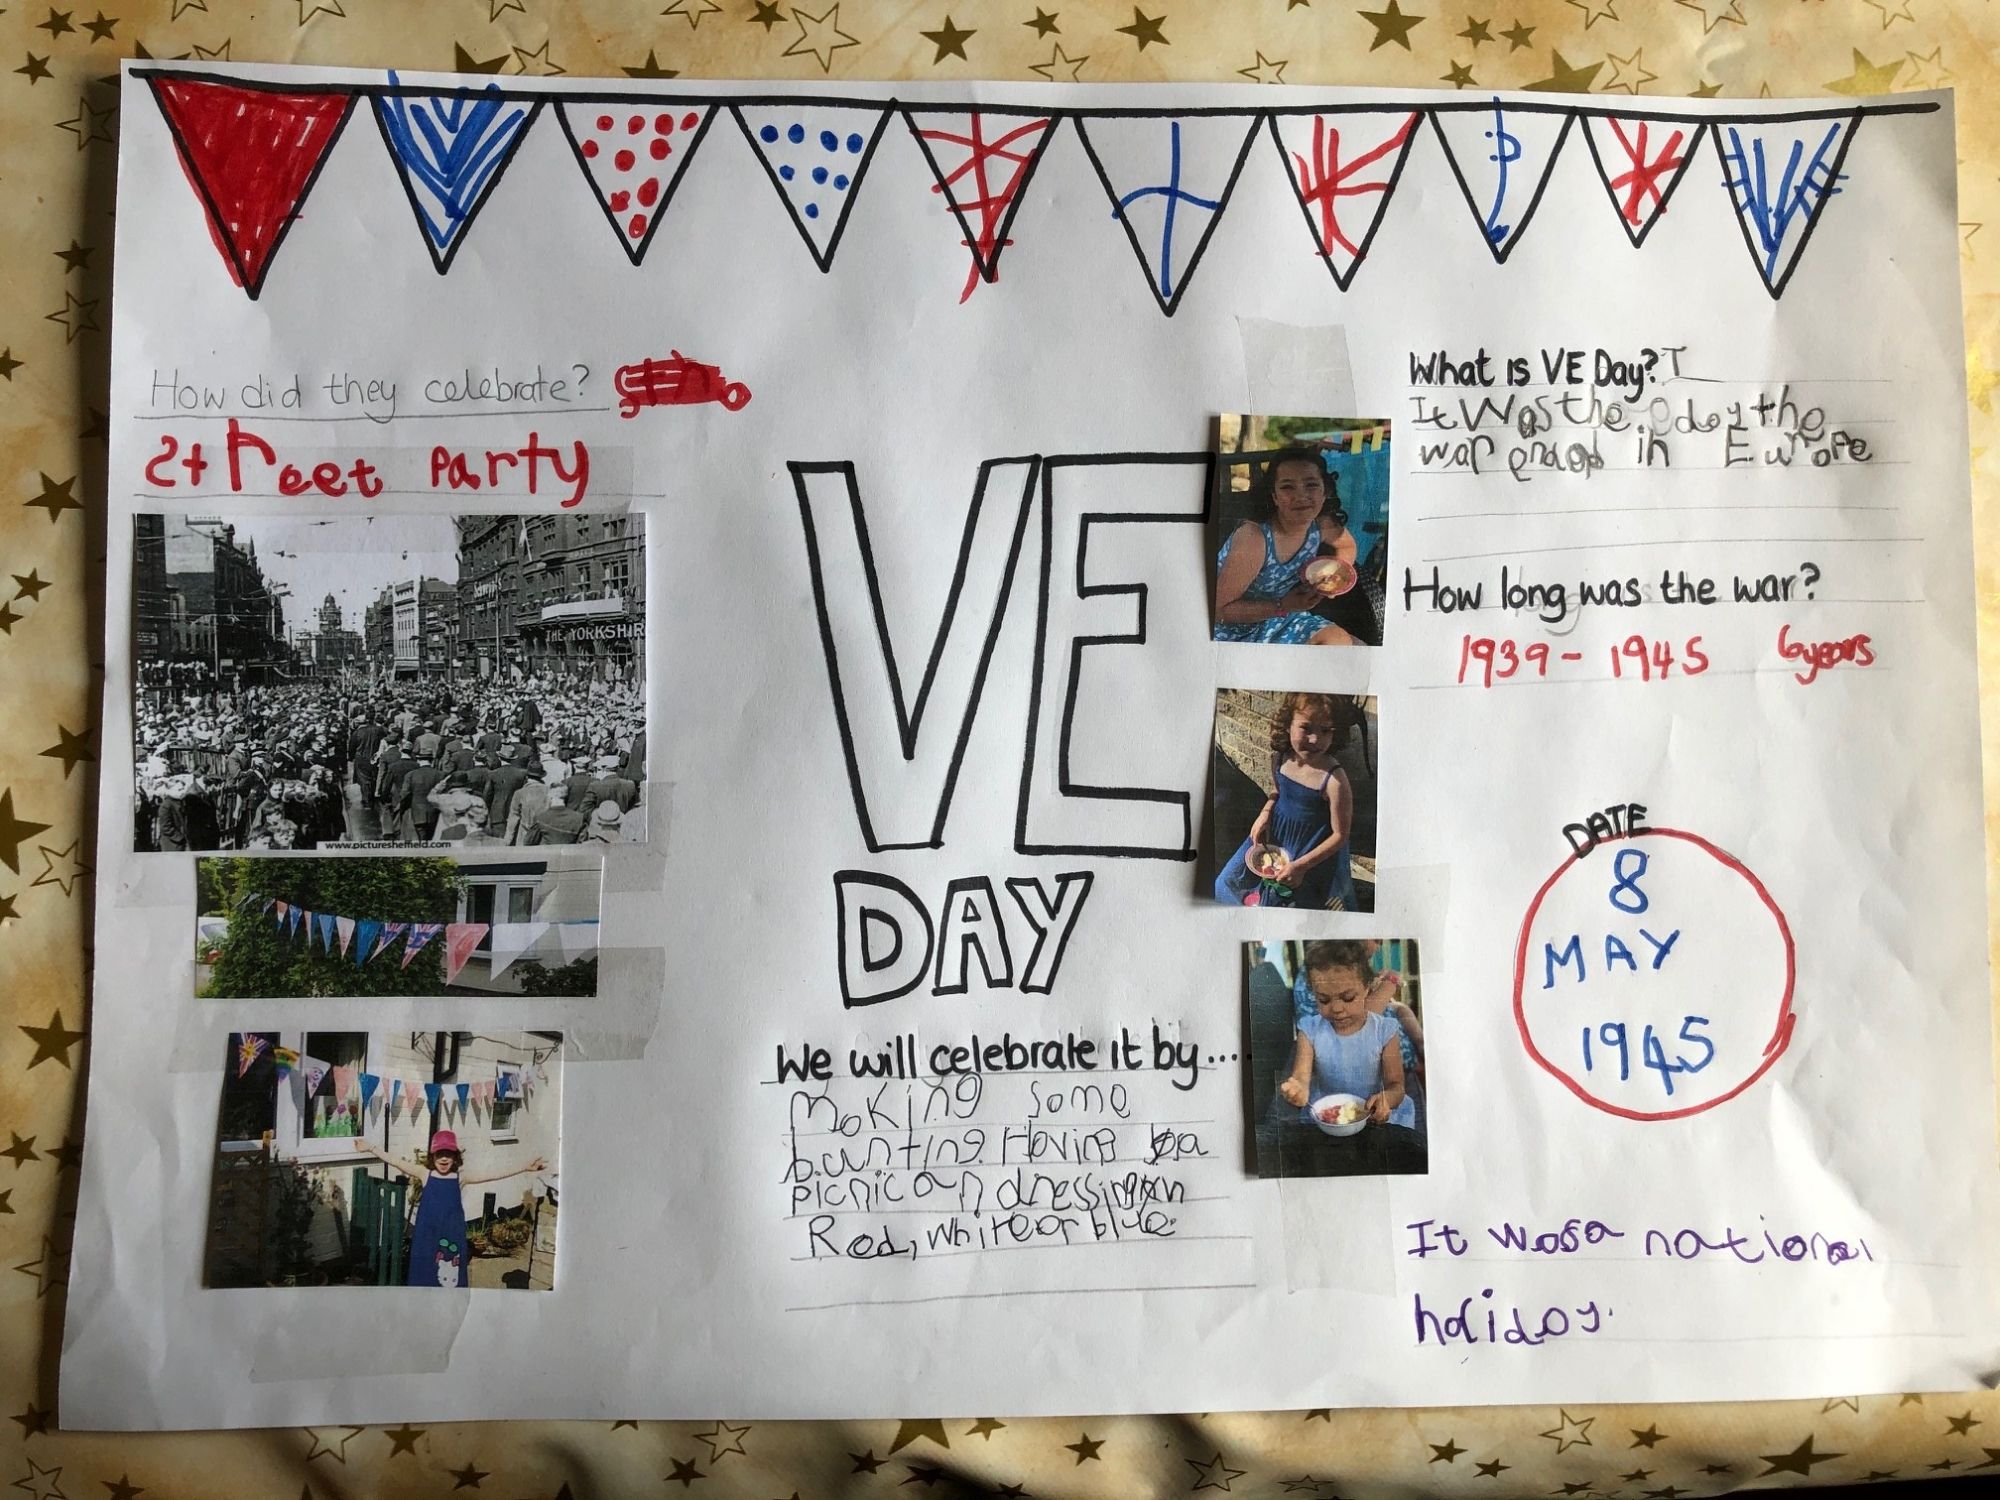 How did they celebrate?
Street party
THE YORKSHIR
www.picturesheffield.com
VE
DAY
We will celebrate it by....
Making some
bunting. Having a
picnic and dressing in
Red, white or blue.
What is VE Day?
It was the day the
war ended in Europe
How long was the war?
1939 - 1945 6 years
DATE
8
MAY
1945
It was a national
holiday.